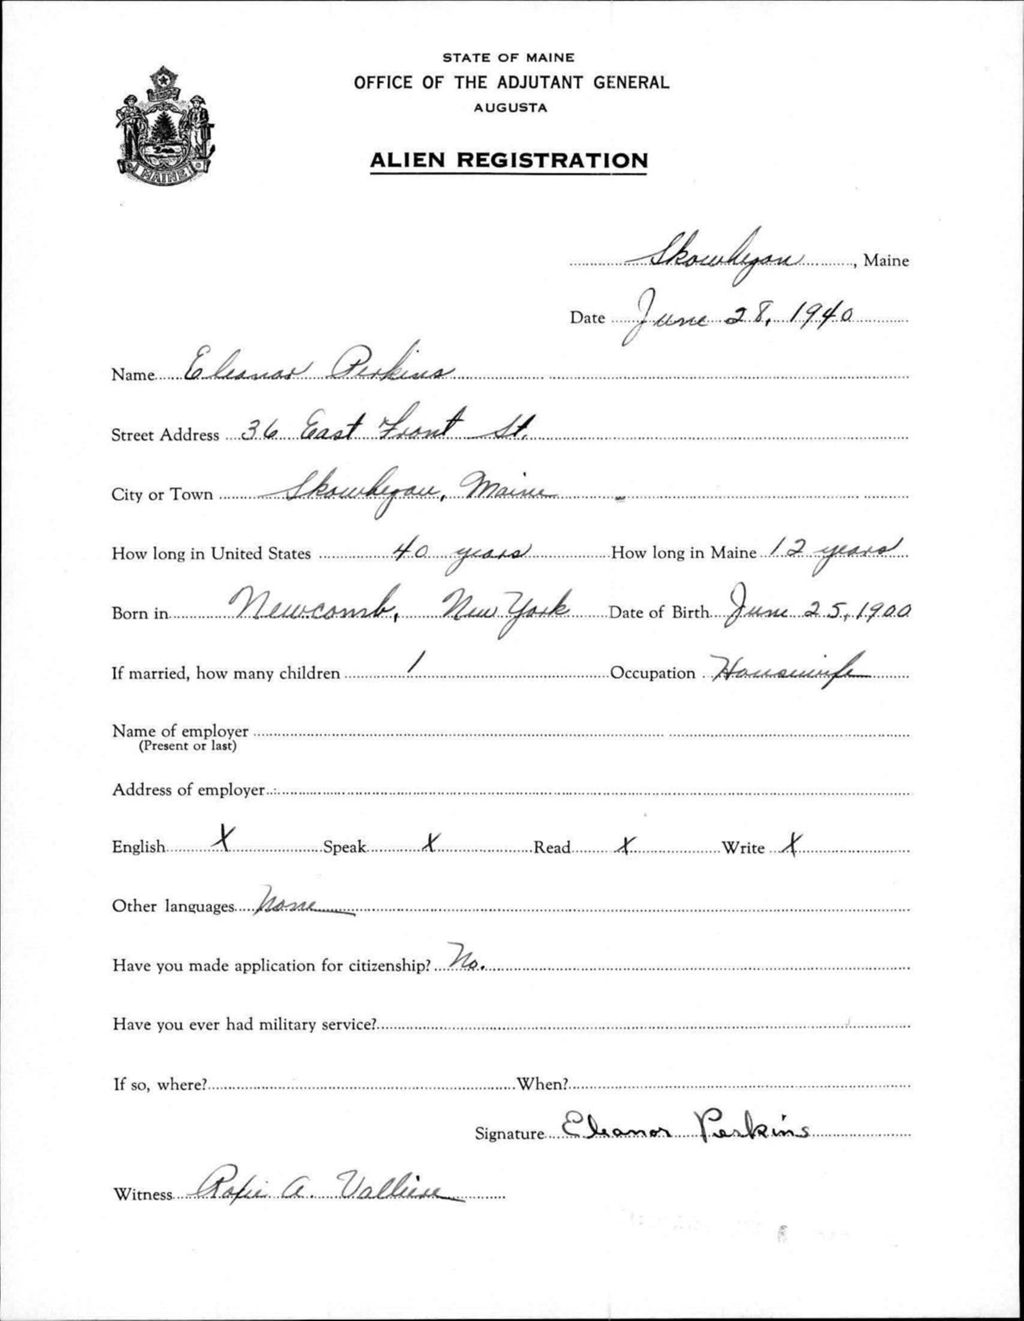 STATE OF MAINE
OFFICE OF THE ADJUTANT GENERAL
AUGUSTA
ALIEN REGISTRATION
MAINE
Skowhegan, Maine
Date June 28, 1940
Name Eleanor Perkins
Street Address 36 East Front St.
City or Town Skowhegan, Maine
How long in United States 40 years How long in Maine 12 years
Born in Newcomb, New York Date of Birth June 25, 1900
If married, how many children 1 Occupation Housewife
Name of employer
(Present or last)
Address of employer
English X Speak X Read X Write X
Other languages None
Have you made application for citizenship? No.
Have you ever had military service?
If so, where? When?
Signature Eleanor Perkins
Witness A.